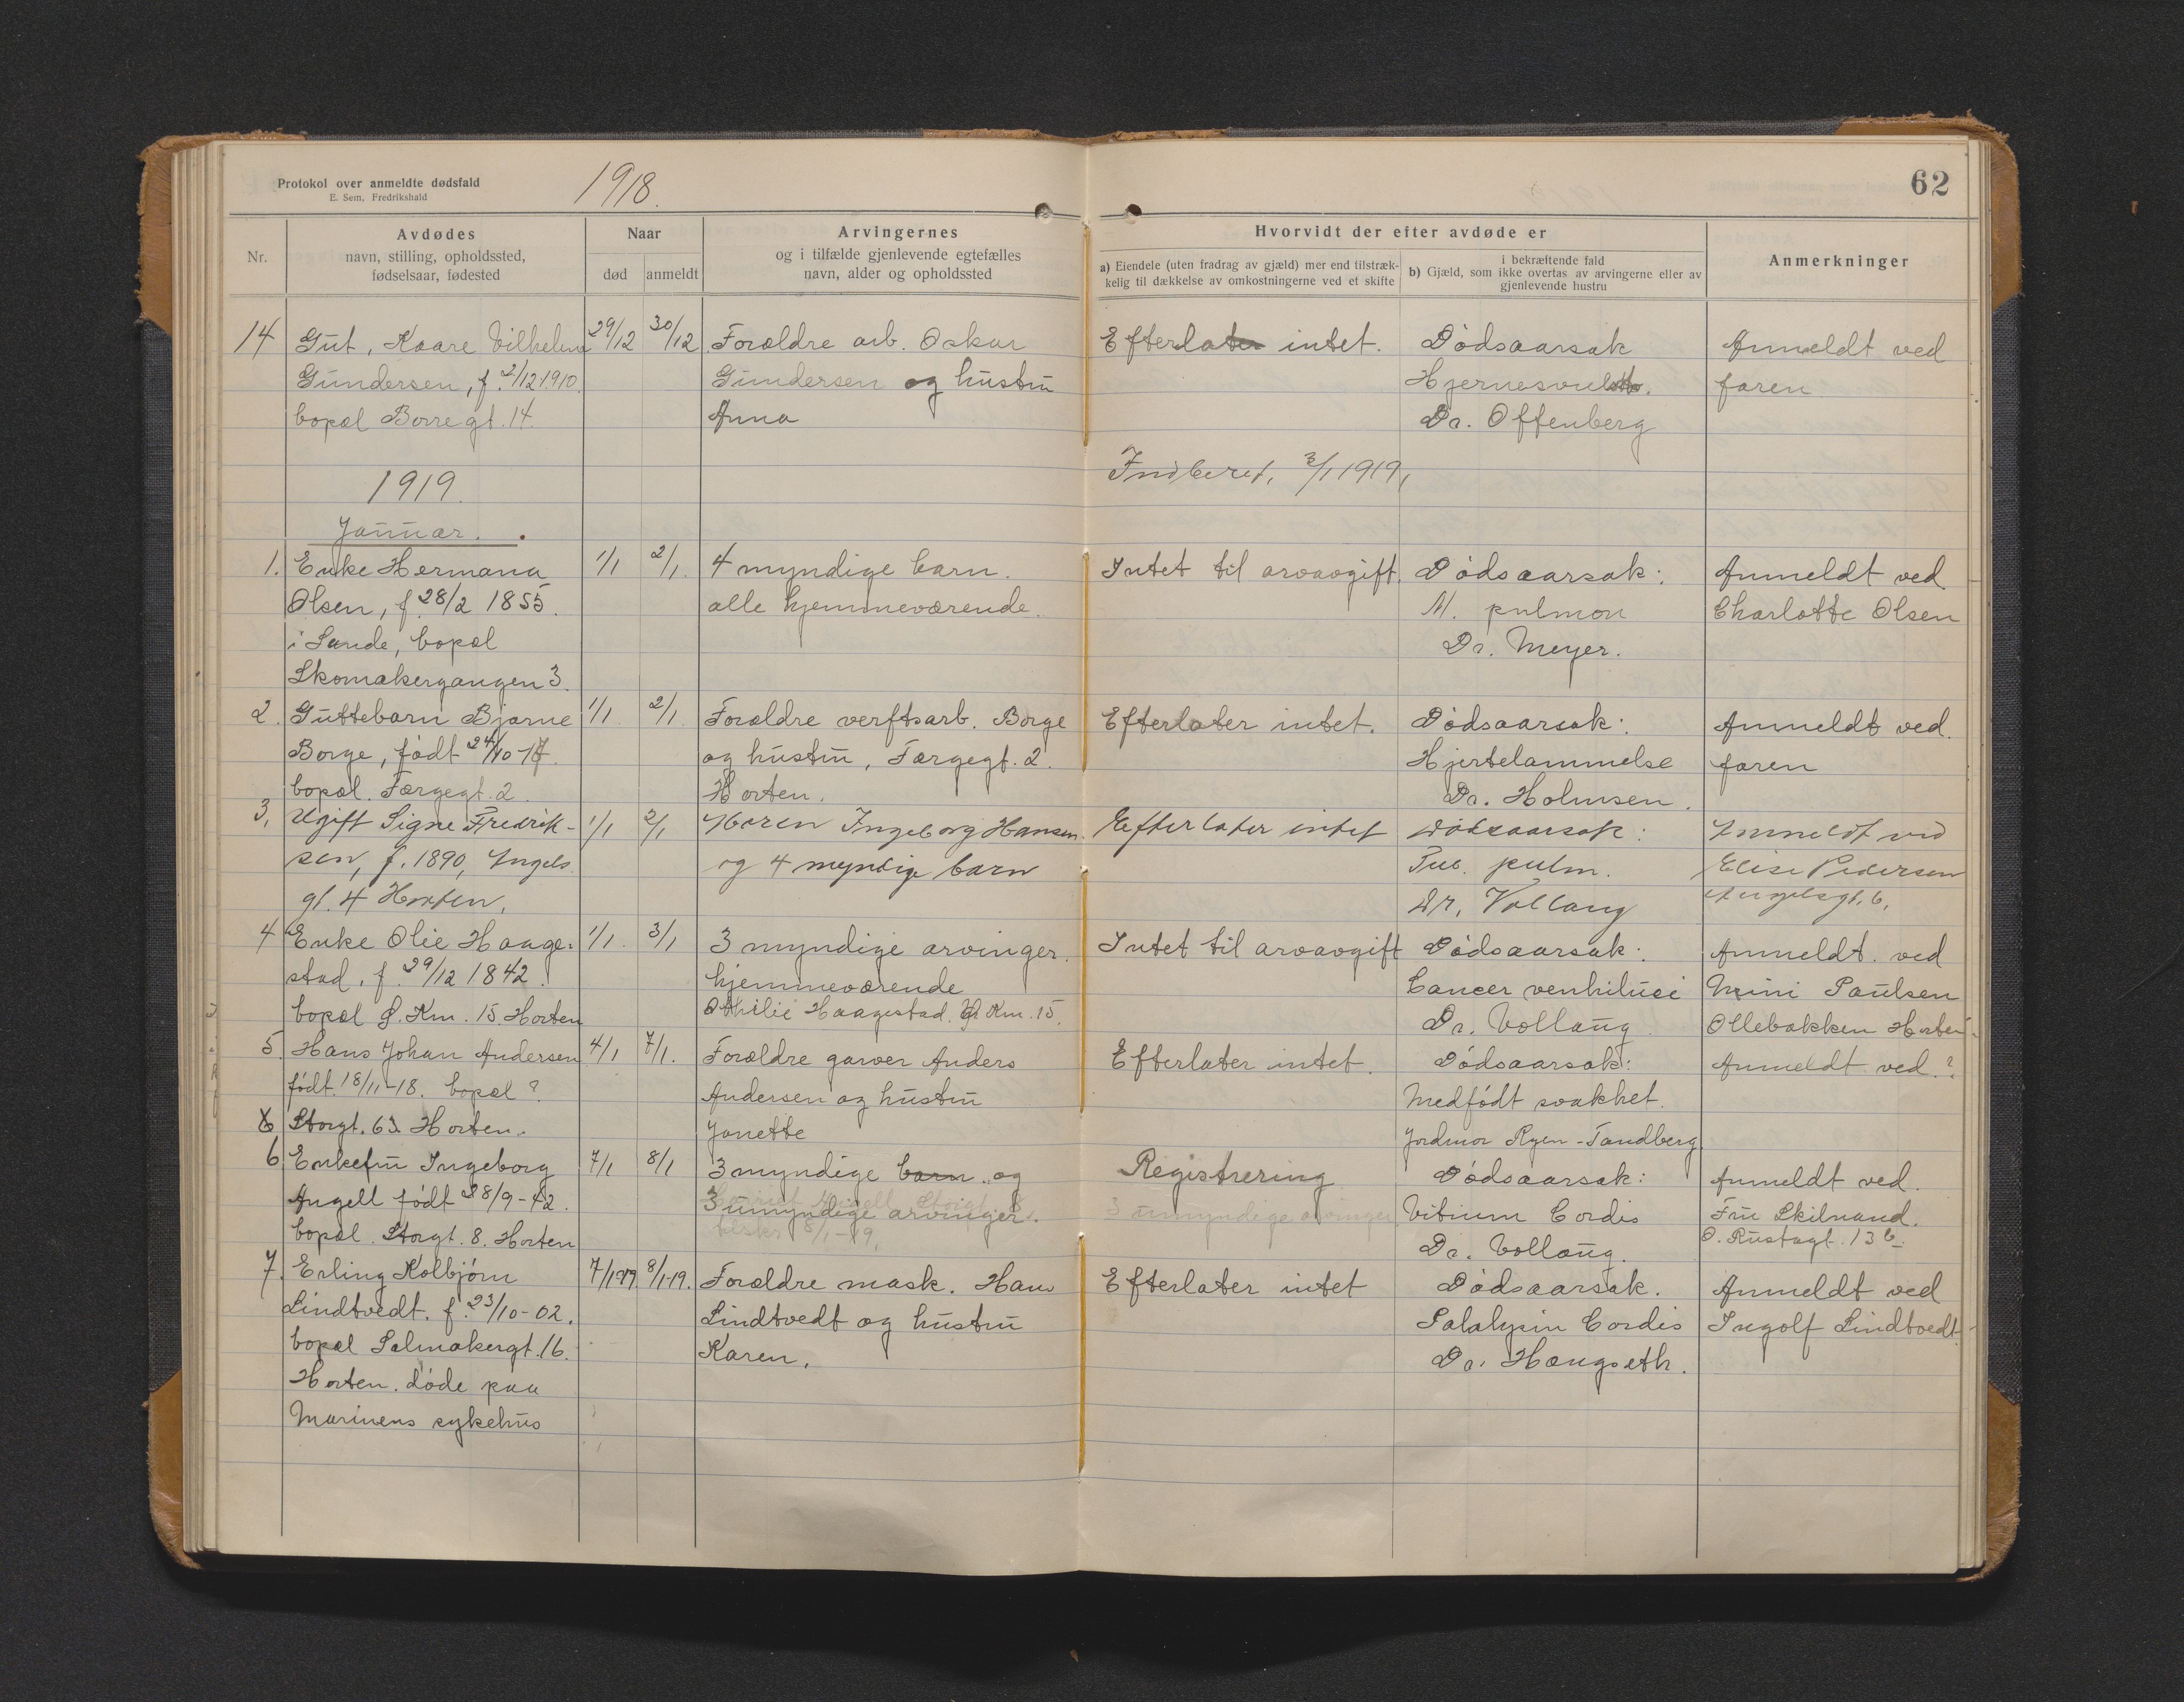 Protokol over anmeldte dødsfald
E. Sem, Fredrikshald
1918.
62
Nr.
Avdødes
navn, stilling, opholdssted,
fødselsaar, fødested
Naar
død
anmeldt
Arvingernes
og i tilfælde gjenlevende egtefælles
navn, alder og opholdssted
Hvorvidt der efter avdøde er
a) Eiendele (uten fradrag av gjæld) mer end tilstræk-
kelig til dækkelse av omkostningerne ved et skifte
i bekræftende fald
b) Gjæld, som ikke overtas av arvingerne eller av
gjenlevende hustru
Anmerkninger
14
Gut, Kaare Vilhelm
Gundersen, f. 2/12 1910.
bopæl Borregt. 14.
29/12
30/12
Forældre arb. Oskar
Gundersen og hustru
Anna
Efterlater intet.
Dødsaarsak
Hjernesvulst.
Dr. Offenberg
Anmeldt ved
faren
Indberet, 3/1 1919,
1919.
Januar.
1.
Enke Hermana
Olsen, f. 28/2 1855.
i Sande, bopæl
Skomakergangen 3.
1/1
2/1.
4 myndige barn.
alle hjemmeværende.
Intet til arvavgift.
Dødsaarsak:
M. pulmon
Dr. Meyer.
Anmeldt ved
Charlotte Olsen
2.
Guttebarn Bjarne
Borge, født 24/10-17.
bopæl. Færgegt. 2
1/1
2/1.
Forældre verftsarb. Borge
og hustru, Færgegt. 2.
Horten.
Efterlater intet.
Dødsaarsak:
Hjertelammelse
Dr. Holmsen.
Anmeldt ved.
faren
3,
Ugift Signe Fredrik-
sen, f. 1890, Engels
gt. 4 Horten,
1/1
2/1
Moren Ingeborg Hansen
og 4 myndige barn
Efterlater intet
Dødsaarsak:
Tub. pulm.
Dr. Vollang
Anmeldt ved
Elise Pedersen
Engelsgt. 6,
4
Enke Olie Haage-
stad, f. 29/12 1842.
bopæl S. Km. 15. Horten
1/1.
3/1
3 myndige arvinger.
hjemmeværende
Othilie Haagestad. Km. 15.
Intet til arvavgift
Dødsaarsak:
Cancer
Dr. Vollang
Anmeldt ved
Mimi Paulsen
Ollebakken Horten.
5.
Hans Johan Andersen
født 18/11-18. bopæl?
Storgt. 63. Horten.
4/1
7/1.
Forældre garver Anders
Andersen og hustru
Janette
Efterlater intet.
Dødsaarsak:
Medfødt svakhet.
Jordmor Ryen-Tandberg
Anmeldt ved ?
6
Enkefru Ingeborg
Angell født 28/9-42.
bopæl. Storgt. 8. Horten
7/1
8/1
3 myndige barn og
3 umyndige arvinger.
Registrering
3 umyndige arvinger
Dødsaarsak:
Vitium Cordis
Dr. Vollang.
Anmeldt ved.
Fru Skilnand.
O. Rustagt. 13 b.
7.
Erling Kolbjørn
Lindtvedt. f. 23/10-02.
bopæl Salmakergt. 16.
Horten. døde paa
Marinens sykehus
7/1-19.
8/1-19.
Forældre mask. Hans
Lindtvedt og hustru
Karen.
Efterlater intet
Dødsaarsak.
Palalysin Cordis
Dr. Haugseth.
Anmeldt ved
Ingolf Lindtvedt